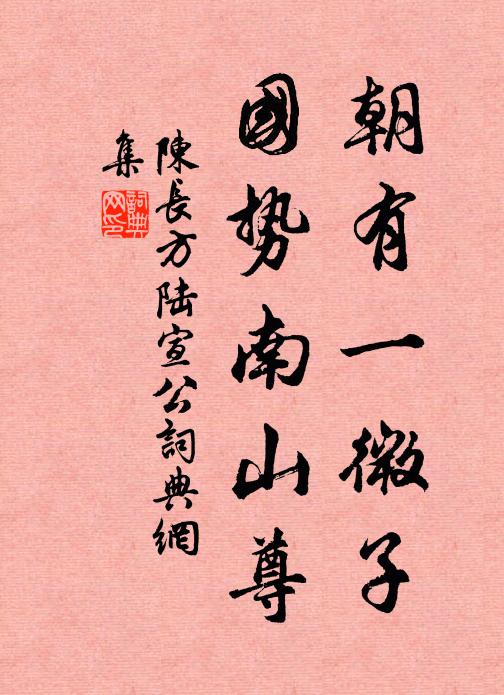 朝有一微子
國勢南山尊
陳長方陸宣公詞典網
集
詞典網印